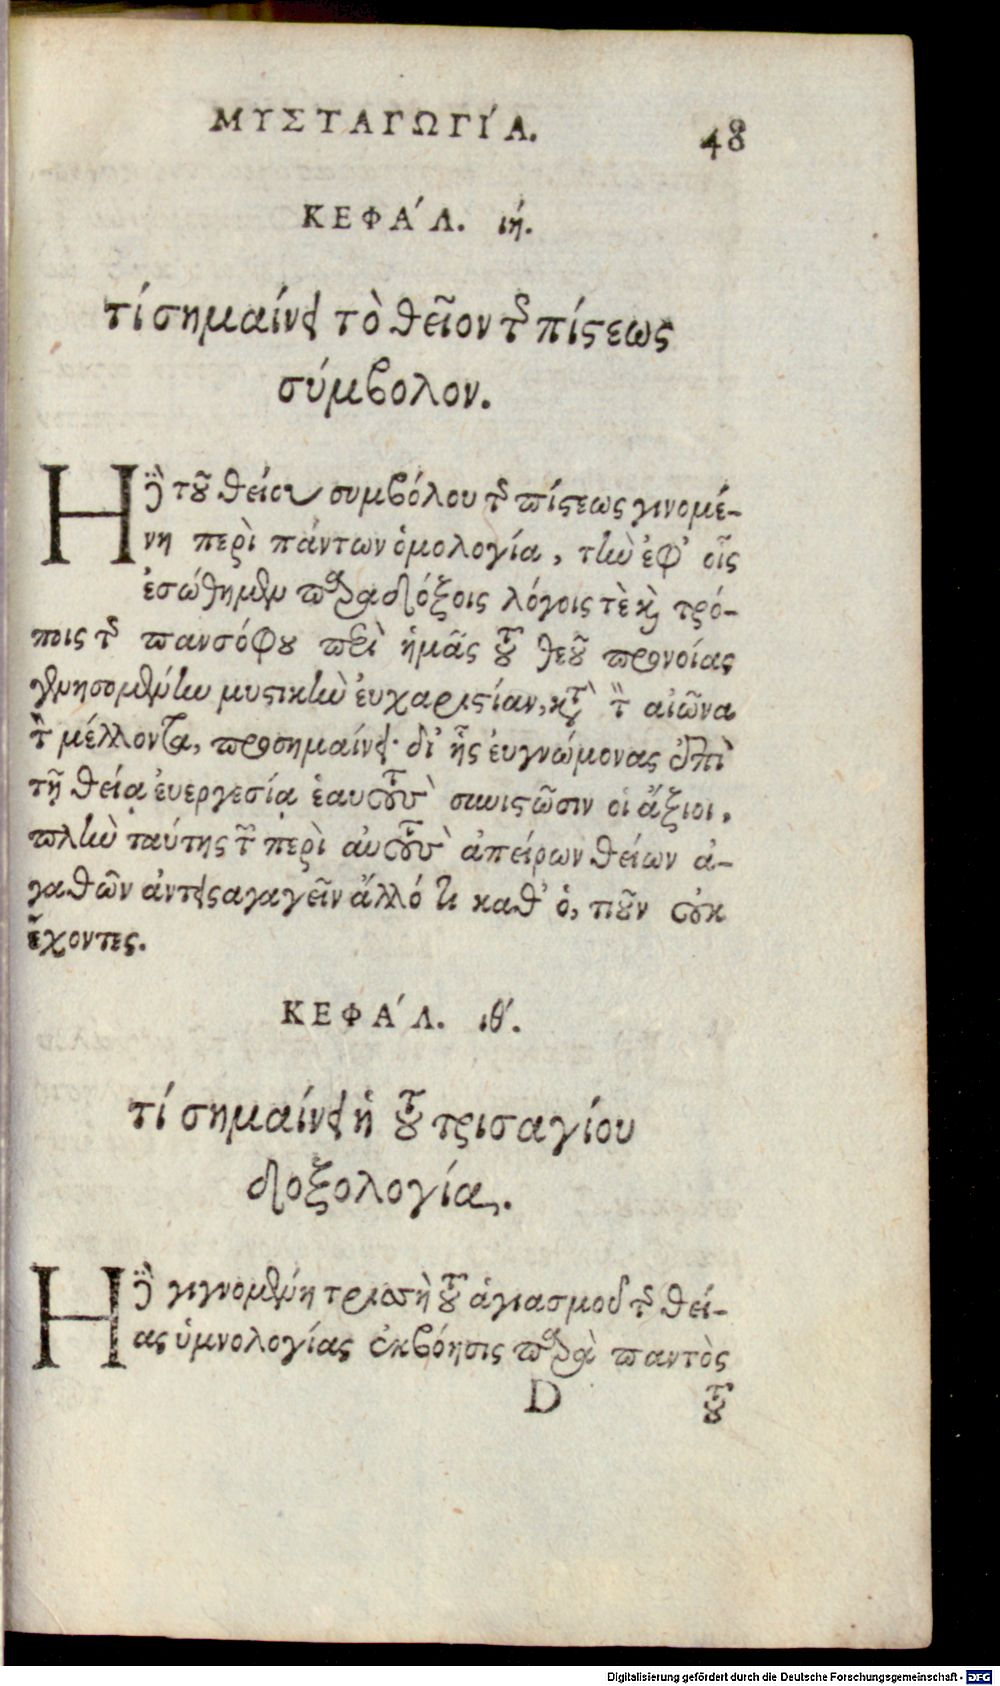 ΜΥΣΤΑΓΩΓΊΑ. 48
ΚΕΦΆΛ. ιή.
τί σημαίνει τὸ θεῖον τῆς πίστεως
σύμβολον.
Ἡ δὲ τοῦ θείου συμβόλου τῆς πίστεως γινομέ-
νη περὶ πάντων ὁμολογία, τὴν ἐφ᾽ οἷς
ἐσώθημεν παραδόξοις λόγοις τὲ καὶ τρό-
ποις τῆς πανσόφου περὶ ἡμᾶς τοῦ θεοῦ προνοίας
γενησομένην μυστικὴν ἐυχαριστίαν, κατὰ τὸν αἰῶνα
τὸν μέλλοντα, προσημαίνει· δι᾽ ἧς ἐυγνώμονας ἐπὶ
τῇ θείᾳ ἐυεργεσίᾳ ἑαυτοὺς συνιστῶσιν οἱ ἄξιοι,
πλὴν ταύτης τῶν περὶ αὐτοὺς ἀπείρων θείων ἀ-
γαθῶν ἀντεισαγαγεῖν ἄλλό τι καθ᾽ ὁ, τιοῦν οὐκ
ἔχοντες.
ΚΕΦΆΛ. ιθ΄.
τί σημαίνει ἡ τοῦ τρισαγίου
δοξολογία.
Ἡ δὲ γιγνομένη τρισσὴ τοῦ ἁγιασμοῦ τῆς θεί-
ας ὑμνολογίας ἐκβόησις παρὰ παντὸς
D τοῦ
Digitalisierung gefördert durch die Deutsche Forschungsgemeinschaft - DFG